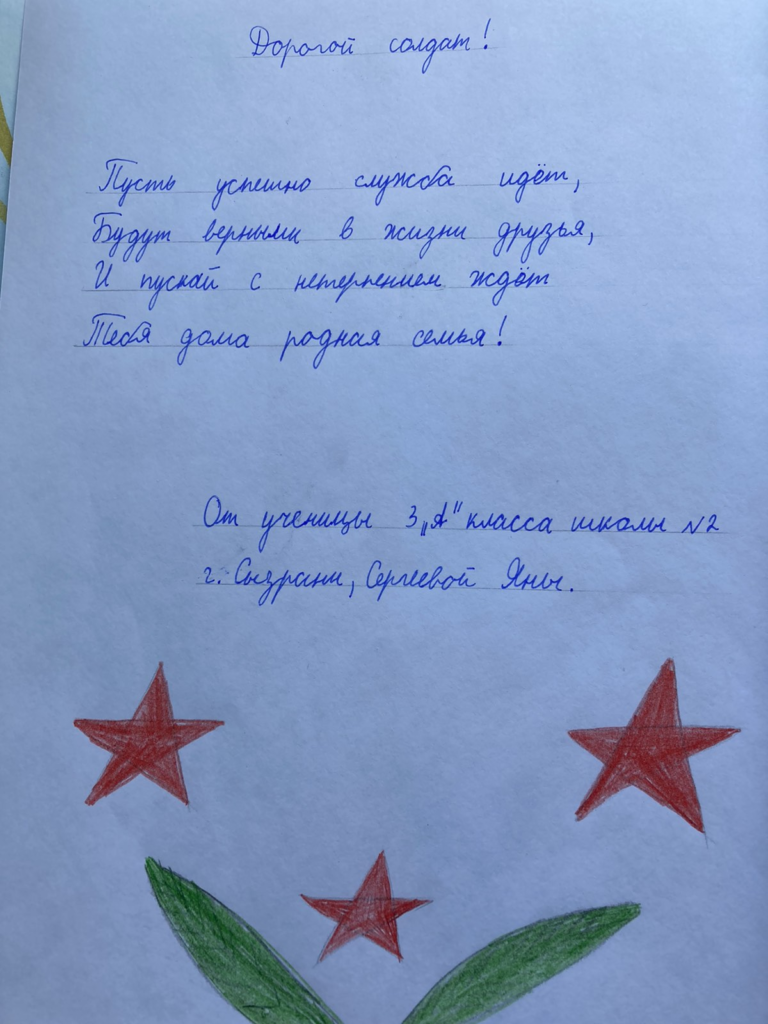 Дорогой солдат!
Пусть успешно служба идёт,
Будут верными в жизни друзья,
И пускай с нетерпением ждёт
Тебя дома родная семья!
От ученицы 3 „А" класса школы №2
г. Сызрани, Сергеевой Яны.